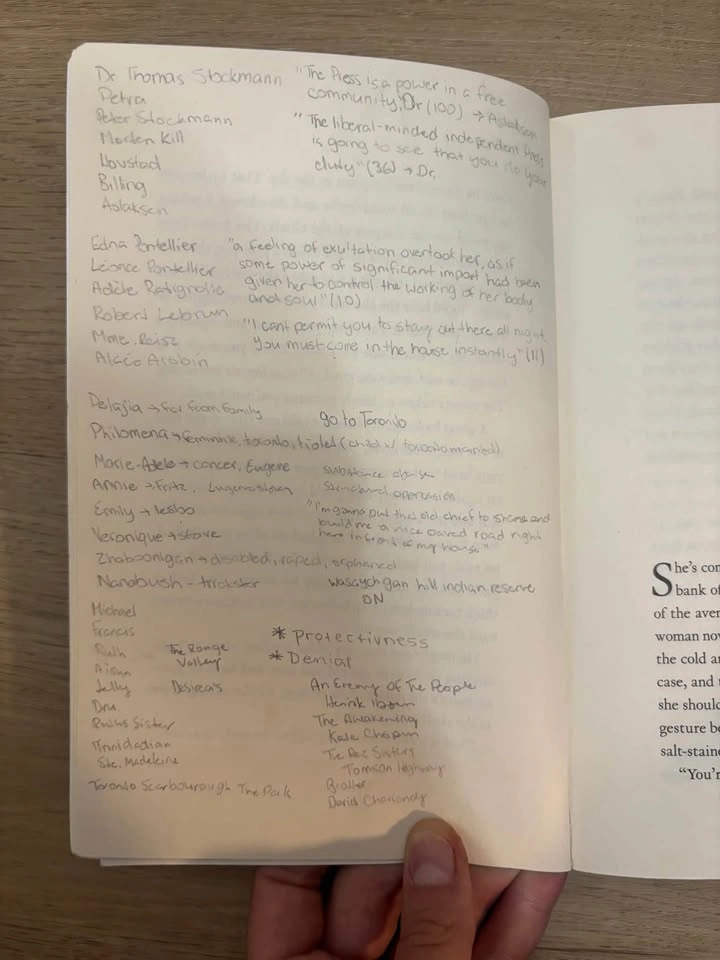 Dr Thomas Stockmann "The Press is a power in a free
Petra community", Dr (100) → Aslaksen
Peter Stockmann "The liberal-minded independent Press
Morten Kiil is going to see that you do your
Hovstad duty" (36) → Dr.
Billing
Aslaksen
Edna Pontellier "a feeling of exultation overtook her, as if
Léonce Pontellier some power of significant import had been
Adèle Ratignolle given her to control the working of her body
Robert Lebrun and soul" (10)
Mme. Reisz "I cant permit you to stay out there all night.
Alcée Arobin You must come in the house instantly" (11)
Delajia → far from family go to Toronto
Philomena → feminine, toronto, toilet (child w/ toronto married)
Marie-Adele → cancer, Eugene substance abuse
Annie → Fritz, structural oppression
Emily → lesbo "I'm gonna put this old chief to shame and
Veronique → stove build me a nice paved road right
here in front of my house"
Zhaboonigan → disabled, raped, orphaned
Nanabush - trickster Wasaychgan hill indian reserve
ON
Michael
Francis * Protectivness
Ruth The Rouge Valley * Denial
Aisha
Jelly Desirea's An Enemy of The People
Dru Henrik Ibsen
Ruths Sister The Awakening
Trinidadian Kate Chopin
Ste. Madeleine The Rez Sisters
Tomson Highway
Toronto Scarbourough The Park Brother
David Chariandy
She's com
bank of
of the aven
woman nov
the cold a
case, and
she should
gesture be
salt-staine
"You'r